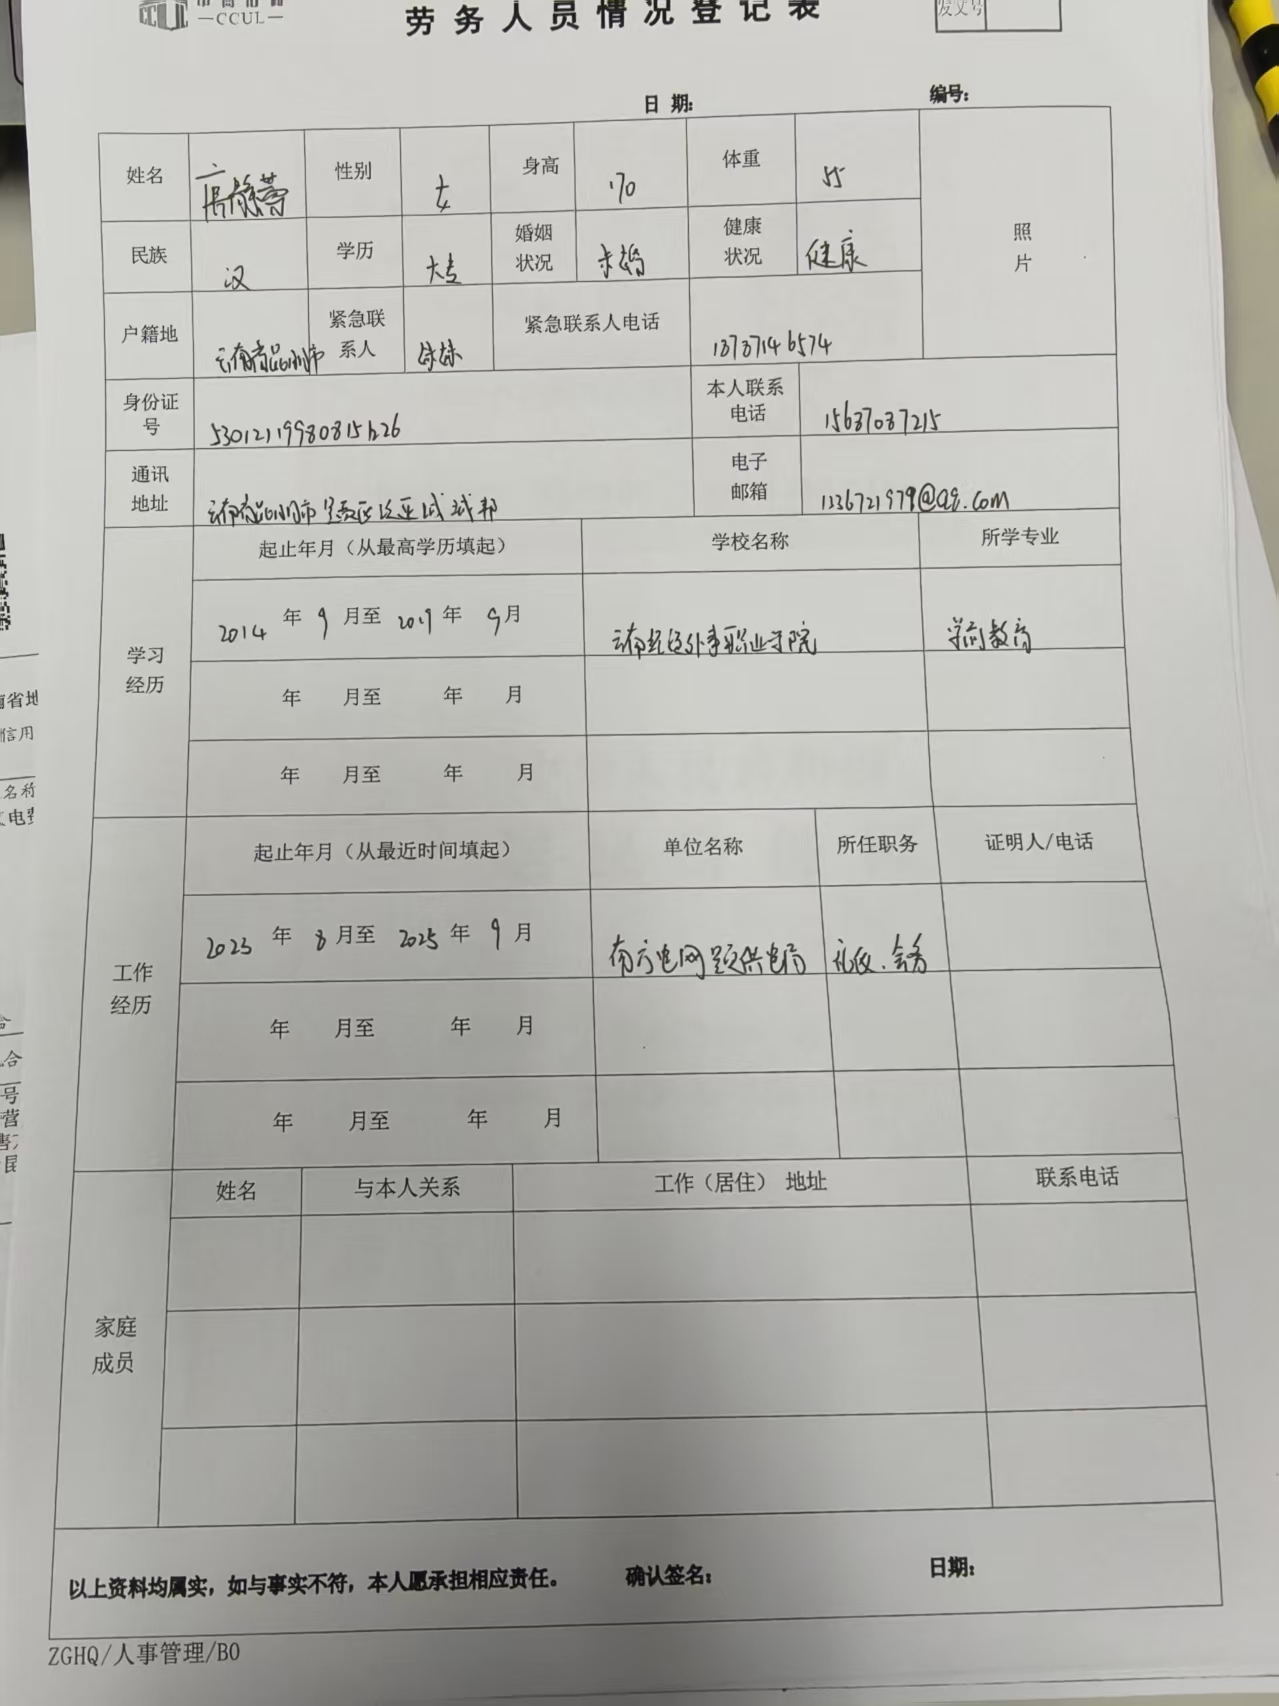 —CCUL—
劳务人员情况登记表
发文号
日期:
编号:
姓名 性别 女 身高 170 体重 55
照片
民族 汉 学历 大专 婚姻状况 未婚 健康状况 健康
户籍地 云南省昆明市 紧急联系人 妹妹 紧急联系人电话 13737146574
身份证号 本人联系电话 15637037215
通讯地址 云南省昆明市 电子邮箱
学习经历
起止年月（从最高学历填起） 学校名称 所学专业
2014 年 9 月至 年 9月 云南经济外事职业学院 学前教育
年 月至 年 月
年 月至 年 月
工作经历
起止年月（从最近时间填起） 单位名称 所任职务 证明人/电话
2023 年 8 月至 2025 年 9 月 南方电网 供电局 礼仪、会务
年 月至 年 月
年 月至 年 月
家庭成员
姓名 与本人关系 工作（居住） 地址 联系电话
以上资料均属实，如与事实不符，本人愿承担相应责任。 确认签名： 日期：
ZGHQ/人事管理/B0